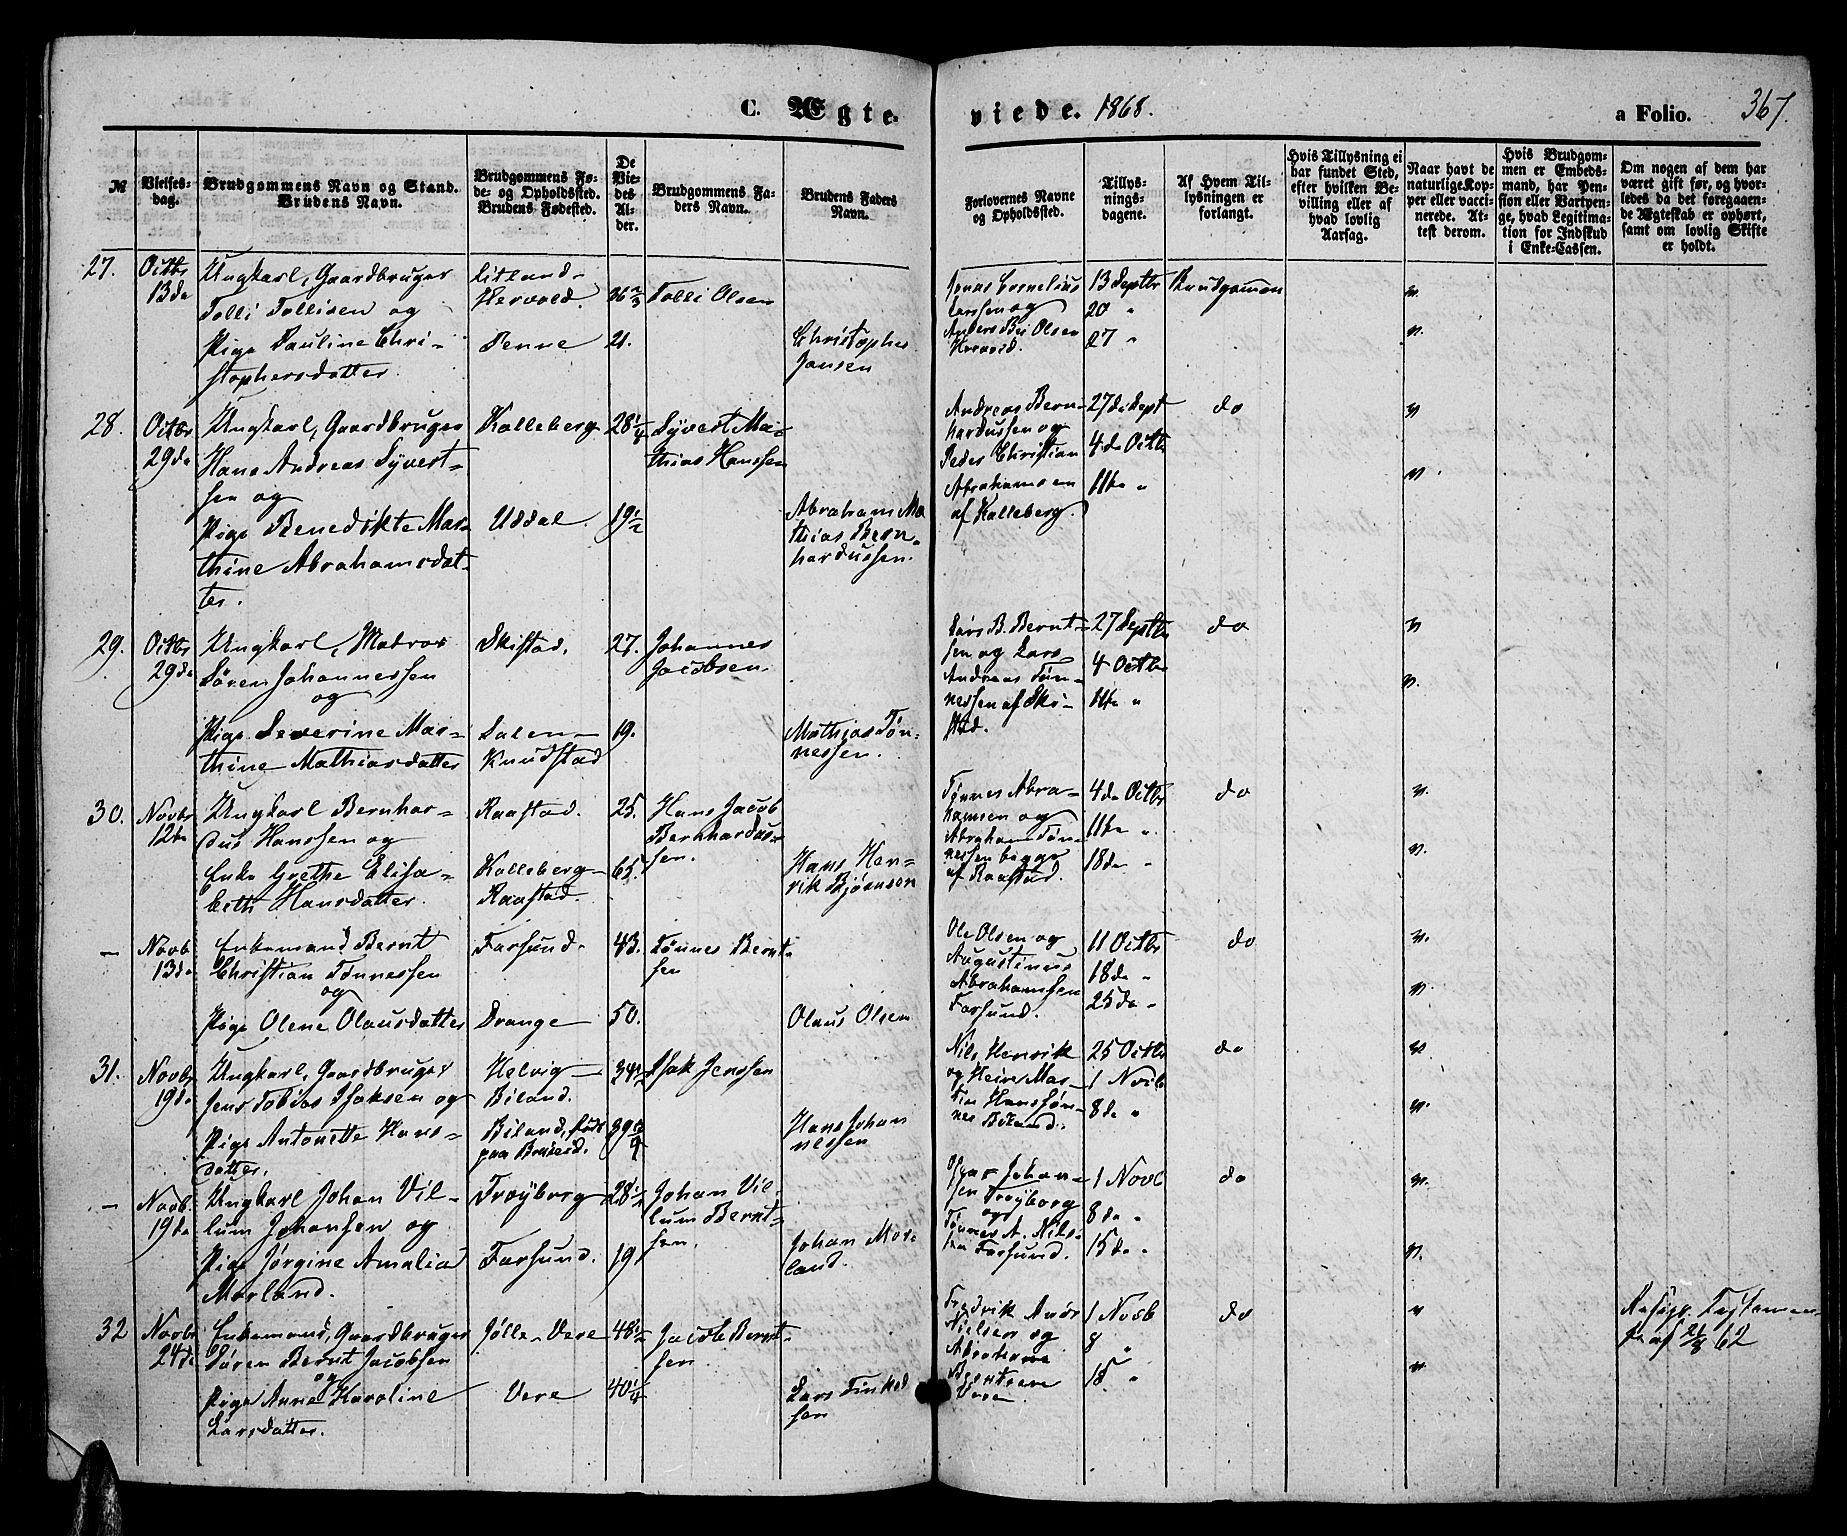 C. Ægte- viede. 1868. a Folio. 367.
№
Vielses-
dag.
Brudgommens Navn og Stand.
Brudens Navn.
Brudgommens Fø-
de- og Opholdssted.
Brudens Fødested.
De
Vie-
des
Al-
der.
Brudgommens Fa-
ders Navn.
Brudens Faders
Navn.
Forlovernes Navne
og Opholdssted.
Tillys-
nings-
dagene.
Af Hvem Til-
lysningen er
forlangt.
Hvis Tillysning ei
har fundet Sted,
efter hvilken Be-
villing eller af
hvad lovlig
Aarsag.
Naar havt de
naturlige Kop-
per eller vacci-
nerede. At-
test derom.
Hvis Brudgom-
men er Embeds-
mand, har Pen-
sion eller Vartpen-
ge, hvad Legitima-
tion for Indskud
i Enke-Cassen.
Om nogen af dem har
været gift før, og hvor-
ledes da det foregaaen-
de Ægteskab er ophørt,
samt om lovlig Skifte
er holdt.
27.
Octbr
13de
Ungkarl, Gaardbruger
Tolli Tollisen og
Pige Pauline Chri-
stophersdatter.
Litland-
Hervold.
Penne
36 2/3
21.
Tolli Olsen
Christopher
Jansen
Jonas Cornelius
Larssen og
Anders Olsen
13 Septbr
20 "
27 "
Brudgommen
28.
Octbr
29de
Ungkarl, Gaardbruger
Hans Andreas Syvert-
sen og
Pige Benedikte Mar-
thine Abrahamsdat-
ter.
Kalleberg
Uddal.
28 1/4
19 1/2
Syvert Ma-
thias Hanssen
Abraham Ma
thias Bern-
hardussen
Andreas Bern-
hardussen og
Peder Christian
Abrahamsen
af Kalleberg.
27de Sept
4de Octbr
11te "
do
29.
Octbr
29de
Ungkarl, Matros
Søren Johannessen
og
Pige Severine Mar-
thine Mathiasdatter
Skistad.
Salen-
Knudstad
27.
19.
Johannes
Jacobsen
Mathias Tøn-
nessen.
Lars B. Bernt-
sen og Lars
Andreas Tøn-
nessen af Ski-
stad.
27 Septbr
4 Octbr
11te "
do
30.
Novbr
12te
Ungkarl Bernhar-
dus Hanssen og
Enke Grethe Elisa-
beth Hansdatter.
Raastad.
Kalleberg-
Raastad.
25.
65.
Hans Jacob
Bernhardus-
sen.
Hans Hen-
rik Bjørnsen
Tønnes Abra-
hamsen og
Abraham Tøn-
nessen begge
af Raastad.
4de Octbr
11te "
18de "
do
-
Novb
13de
Enkemand Bernt
Christian Tønnessen
og
Pige Olene Olausdatter
Farsund.
Drange
43.
50.
Tønnes Bernt-
sen
Olaus Olsen
Ole Olsen og
Augustinus
Abrahamsen
Farsund.
11 Octbr
18de "
25de "
do
31.
Novbr
19de
Ungkarl, Gaardbruger
Jens Tobias Isaksen og
Pige Antonette Hans-
datter.
Helvig-
Biland.
Biland, født
paa
Isak Jenssen
Hans Johan
nessen
Nils Henrik
og Hein Mar-
tin Hans Tøn-
nes Biland.
25 Octbr
1 Novb
8de "
do
-
Novb.
19de
Ungkarl Johan Vil-
lum Johansen og
Pige Jørgine Amalia
Marland.
Trøyborg
Farsund.
28 1/2
19
Johan Vil-
lum Bernt-
sen.
Johan Mar-
land.
Johan-
sen Trøyborg
og
Tønnes A. Nils-
sen Farsund.
1 Novb
8de "
15de "
do
32
Novbr
24de
Enkemand, Gaardbruger
Søren Bernt Jacobsen
og
Pige Anne Karoline
Larsdatter.
Jølle-Vere
Vere
48 1/2
40 1/4
Jacob Bernt-
sen.
Lars Tinked
sen
Fredrik
Nielsen og
Abraham
Berntsen
Vere.
1 Novb
8 "
15 "
do
Testamen-
te af 21/8 62